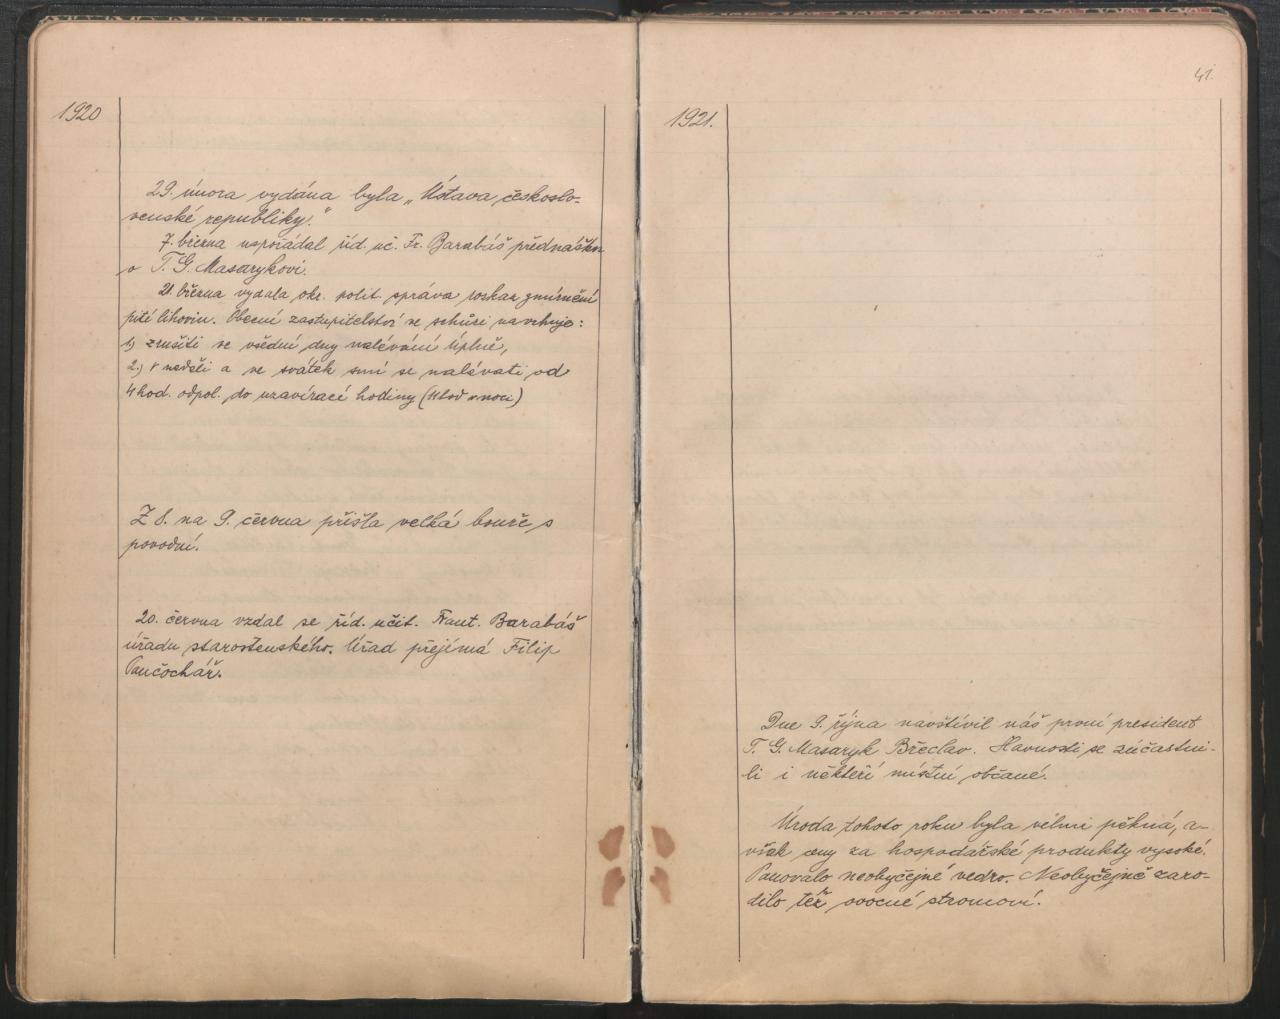 1920
29. února vydána byla „Ústava českoslo-
venské republiky."
7. března uspořádal říd. uč. Fr. Barabáš přednášku
o T. G. Masarykovi.
21. března vydala okr. polit. správa rozkaz zmírnění
pití lihovin. Obecní zastupitelství ve schůzi navrhuje:
1) zrušiti ve všední dny nalévání úplně,
2.) v neděli a ve svátek smí se nalévati od
4 hod. odpol. do uzavírací hodiny (11 hod v noci)
Z 8. na 9. června přišla velká bouře s
povodní.
20. června vzdal se říd. učit. Frant. Barabáš
úřadu starostenského. Úřad přejímá Filip
Pančochář.
41.
1921.
Dne 9. října navštívil náš první president
T. G. Masaryk Břeclav. Slavnosti se zúčastni-
li i někteří místní občané.
Úroda tohoto roku byla velmi pěkná, a-
však ceny za hospodářské produkty vysoké.
Panovalo neobyčejné vedro. Neobyčejně zaro-
dilo též ovocné stromoví.